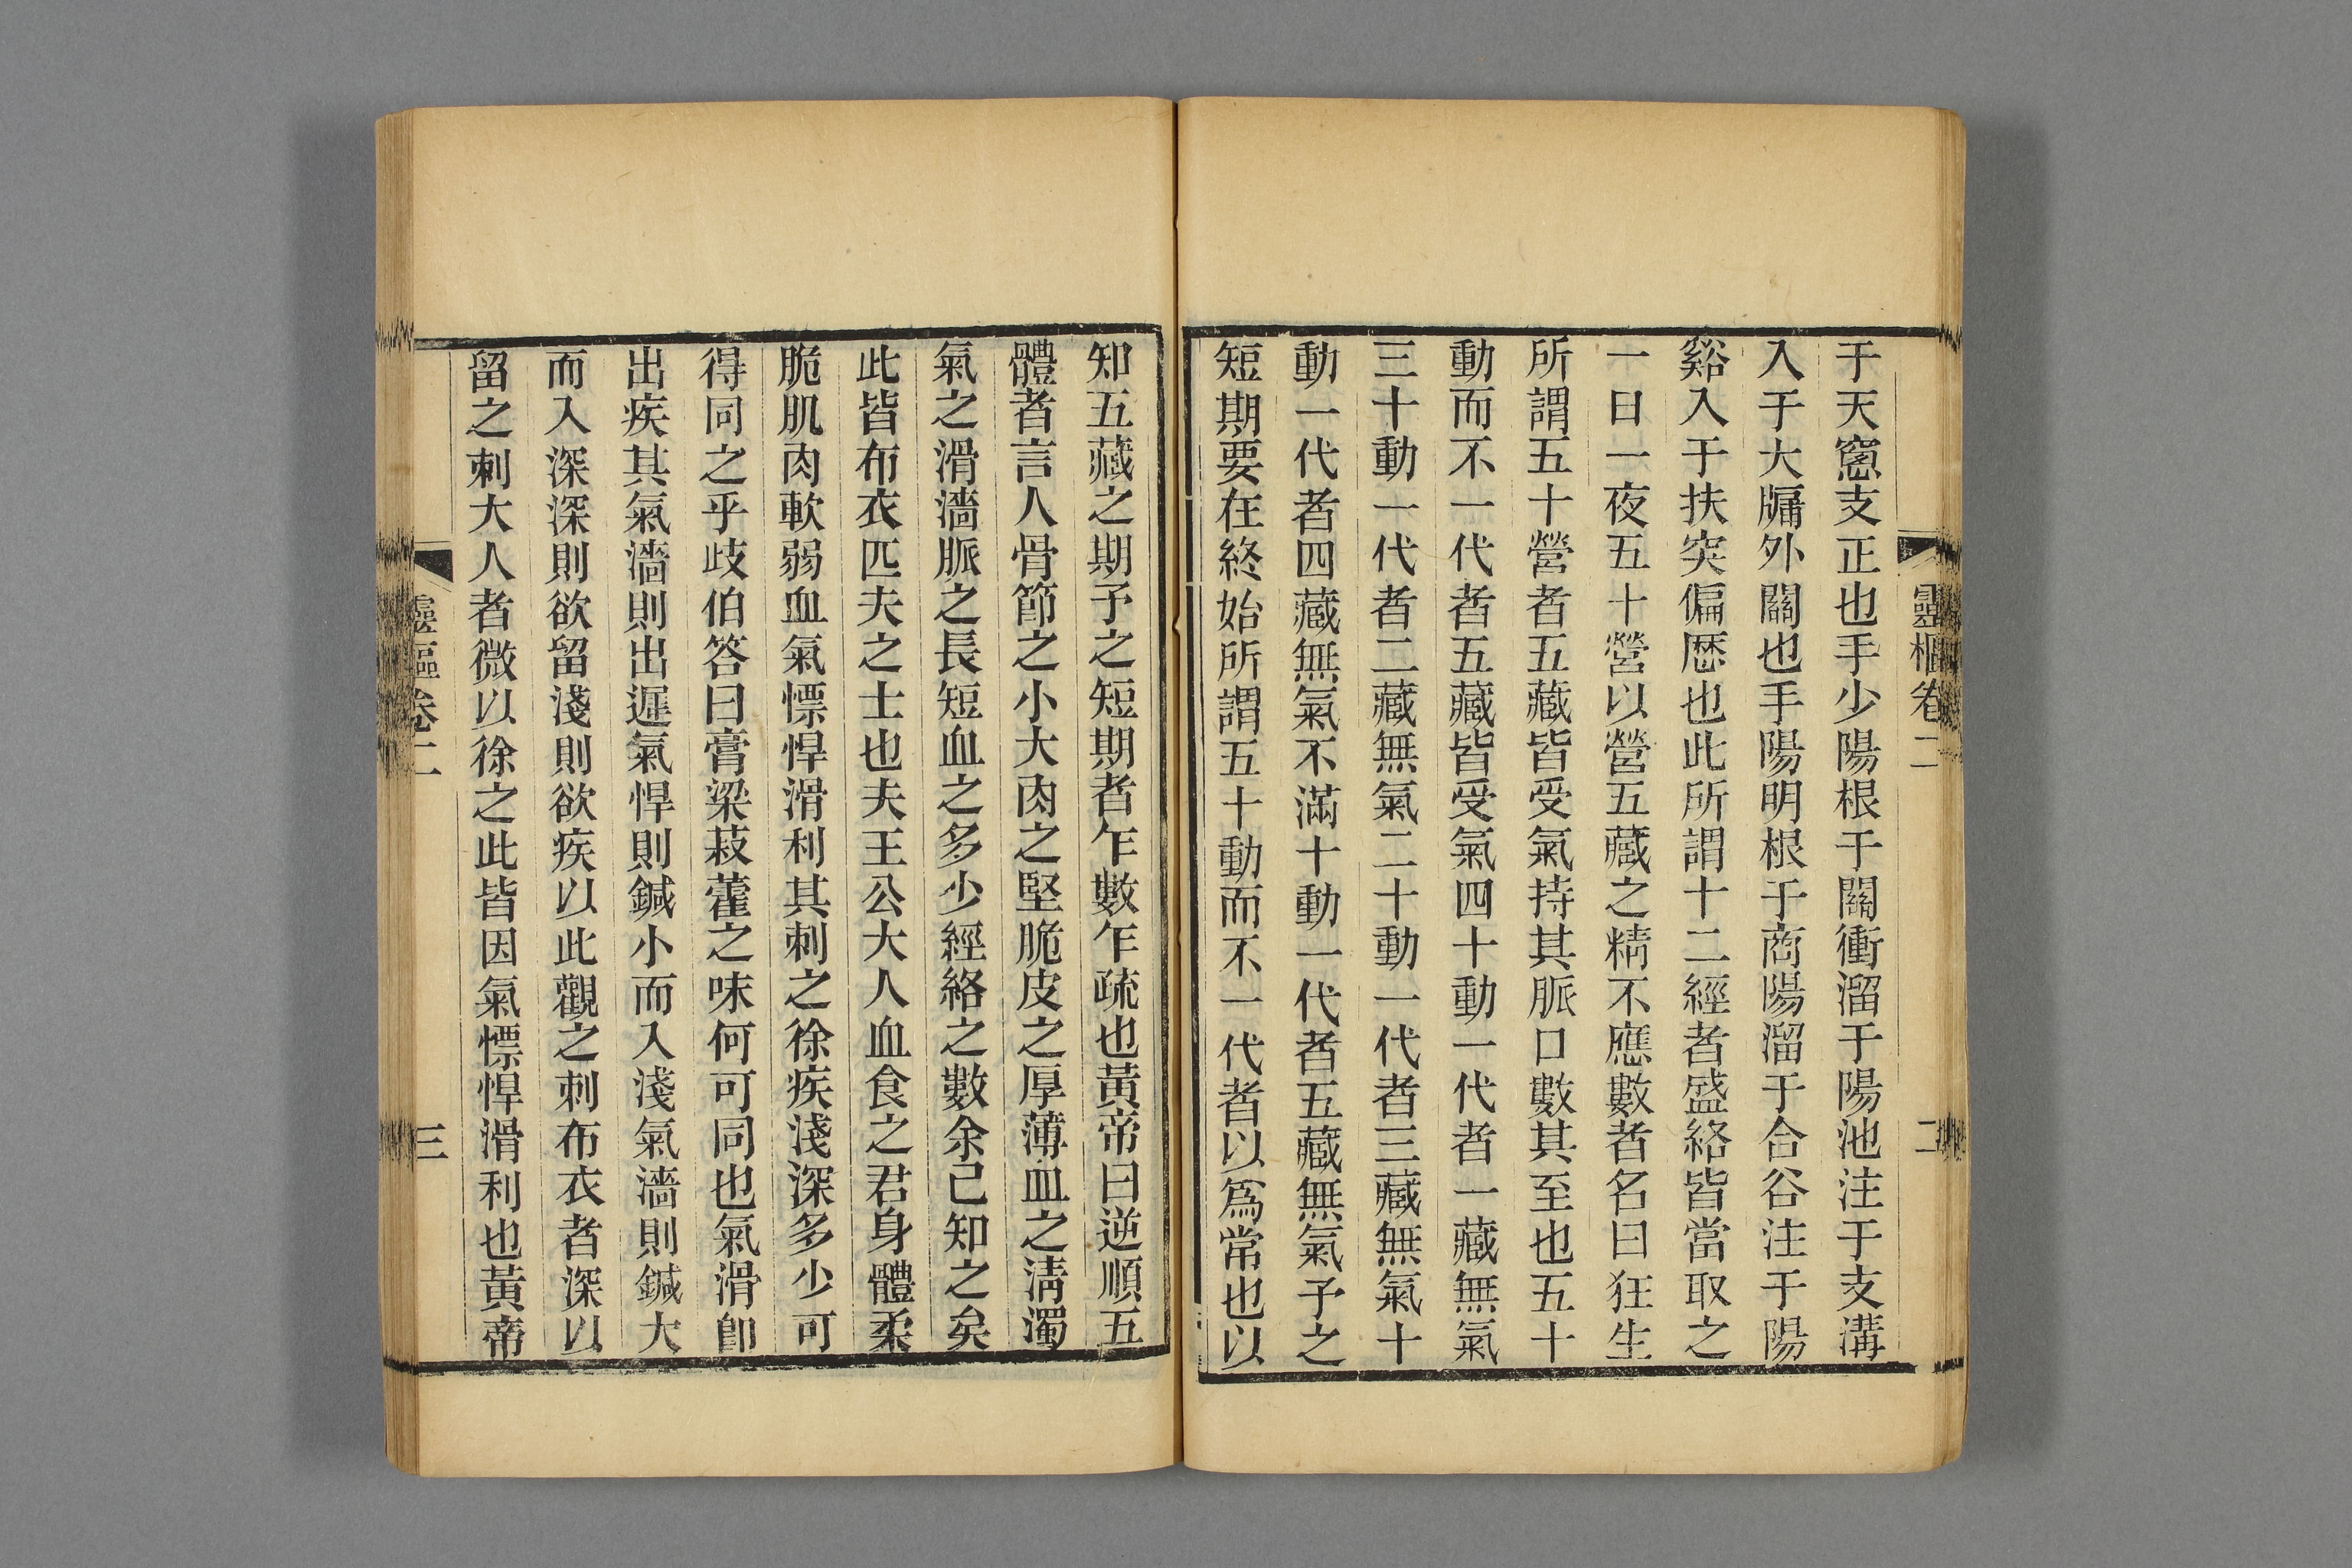 靈樞卷二
二
于天窻支正也手少陽根于關衝溜于陽池注于支溝
入于天牖外關也手陽明根于商陽溜于合谷注于陽
谿入于扶突偏歷也此所謂十二經者盛絡皆當取之
一日一夜五十營以營五藏之精不應數者名曰狂生
所謂五十營者五藏皆受氣持其脈口數其至也五十
動而不一代者五藏皆受氣四十動一代者一藏無氣
三十動一代者二藏無氣二十動一代者三藏無氣十
動一代者四藏無氣不滿十動一代者五藏無氣予之
短期要在終始所謂五十動而不一代者以爲常也以
知五藏之期予之短期者乍數乍疏也黃帝曰逆順五
體者言人骨節之小大肉之堅脆皮之厚薄血之淸濁
氣之滑濇脈之長短血之多少經絡之數余已知之矣
此皆布衣匹夫之士也夫王公大人血食之君身體柔
脆肌肉軟弱血氣慓悍滑利其刺之徐疾淺深多少可
得同之乎歧伯答曰膏粱菽藿之味何可同也氣滑卽
出疾其氣濇則出遲氣悍則鍼小而入淺氣濇則鍼大
而入深深則欲留淺則欲疾以此觀之刺布衣者深以
留之刺大人者微以徐之此皆因氣慓悍滑利也黃帝
靈樞卷二
三